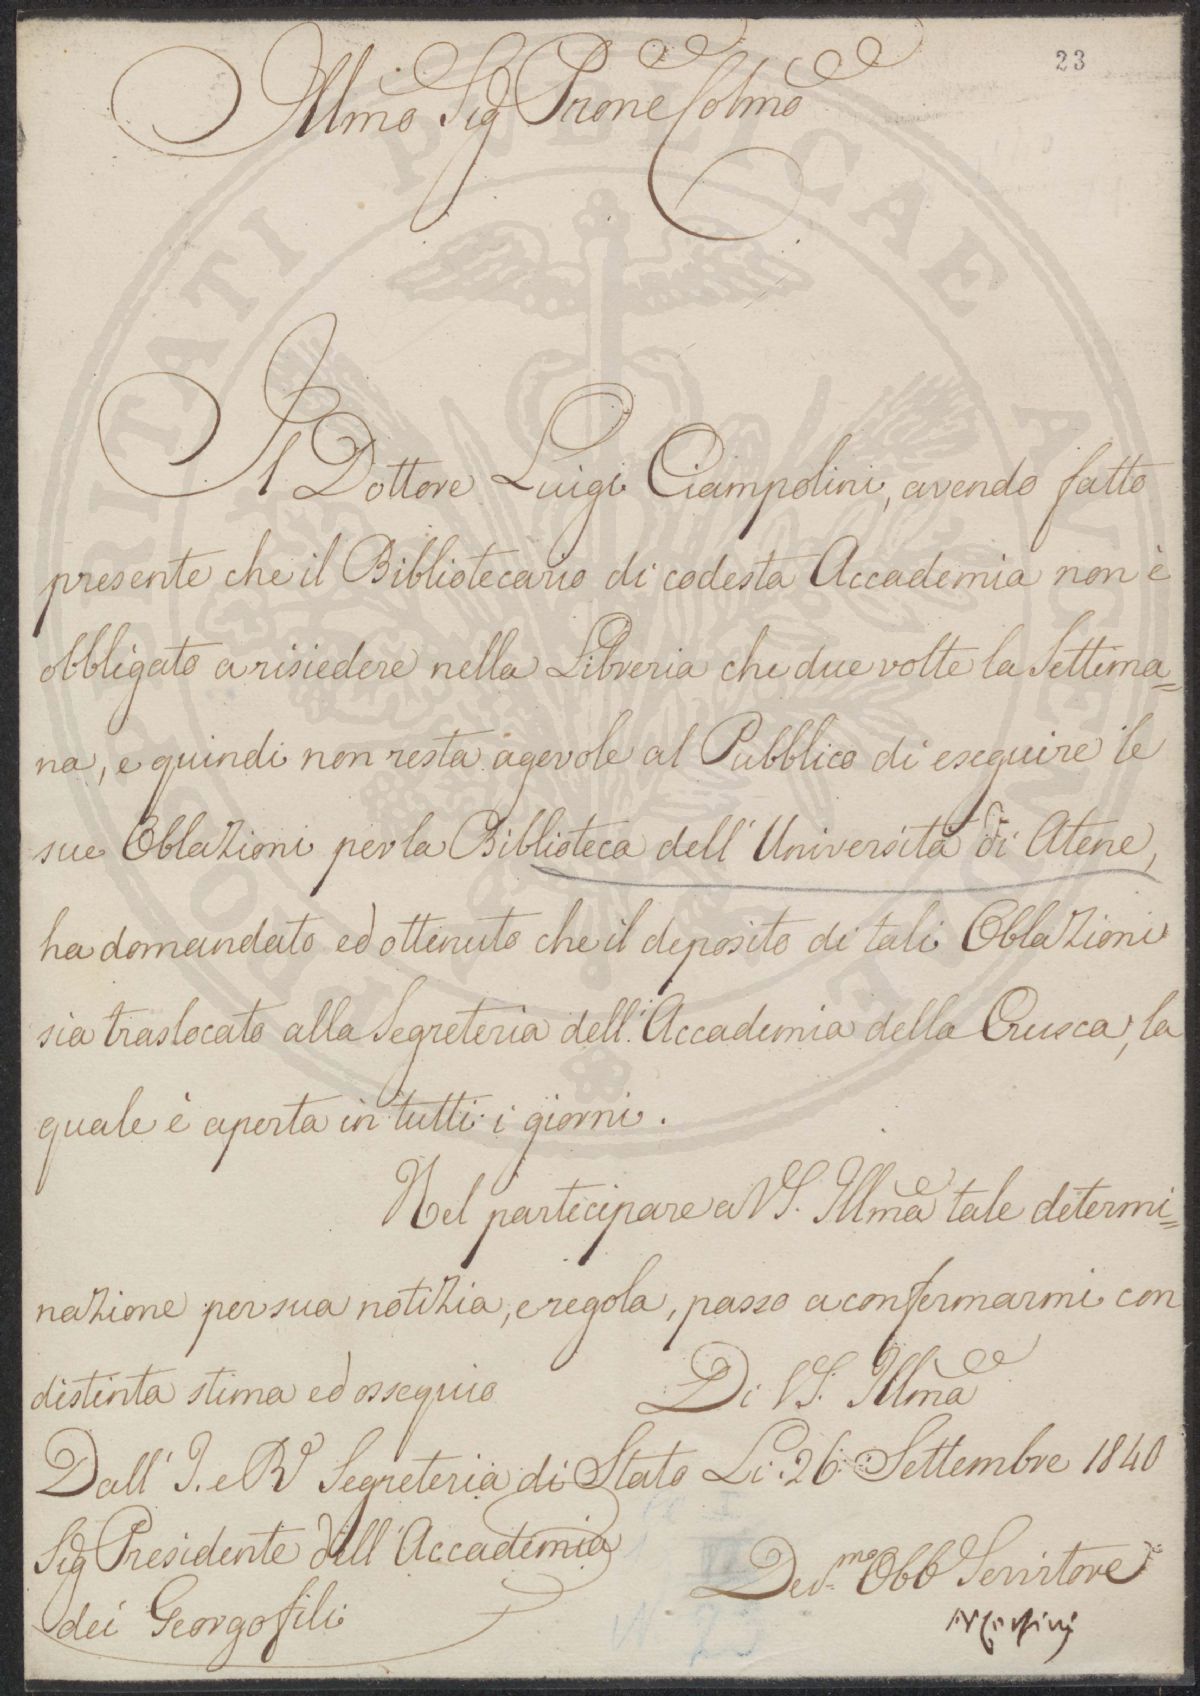 23
Illmo Sig Prone Colmo
Il Dottore Luigi Ciampolini, avendo fatto
presente che il Bibliotecario di codesta Accademia non è
obbligato a risiedere nella Libreria che due volte la Settima=
na, e quindi non resta agevole al Pubblico di eseguire le
sue Oblazioni per la Biblioteca dell'Università di Atene,
ha domandato ed ottenuto che il deposito di tali Oblazioni
sia traslocato alla Segreteria dell'Accademia della Crusca, la
quale è aperta in tutti i giorni.
Nel partecipare a VS. Illma tale determi=
nazione per sua notizia, e regola, passo a confermarmi con
distinta stima ed ossequio
Di VS. Illma
Dall'I. e R. Segreteria di Stato Li 26 Settembre 1840
Sig Presidente dell'Accademia
dei Georgofili
Dev.mo Obb Servitore
N Corsini
PROSPERITATI PUBLICAE AUGENDAE